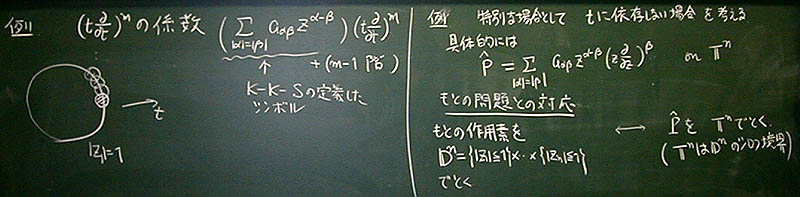 例) (t∂/∂t)^m の係数 (Σ_{|α|=|β|} a_{αβ} z^{α-β}) (t∂/∂t)^m
↑ + (m-1 階)
K-K-Sの定義した
シンボル
→ t
|z|=1
例) 特別な場合として tに依存しない場合を考える
具体的には
P̂ = Σ_{|α|=|β|} a_{αβ} z^{α-β} (z∂/∂z)^β on 𝕋^n
もとの問題との対応
もとの作用素を ⟷ P̂を 𝕋^n でとく.
𝔻^n = {|z_1|≦1}×…×{|z_n|≦1} (𝕋^n は 𝔻^n のシロフ境界)
でとく